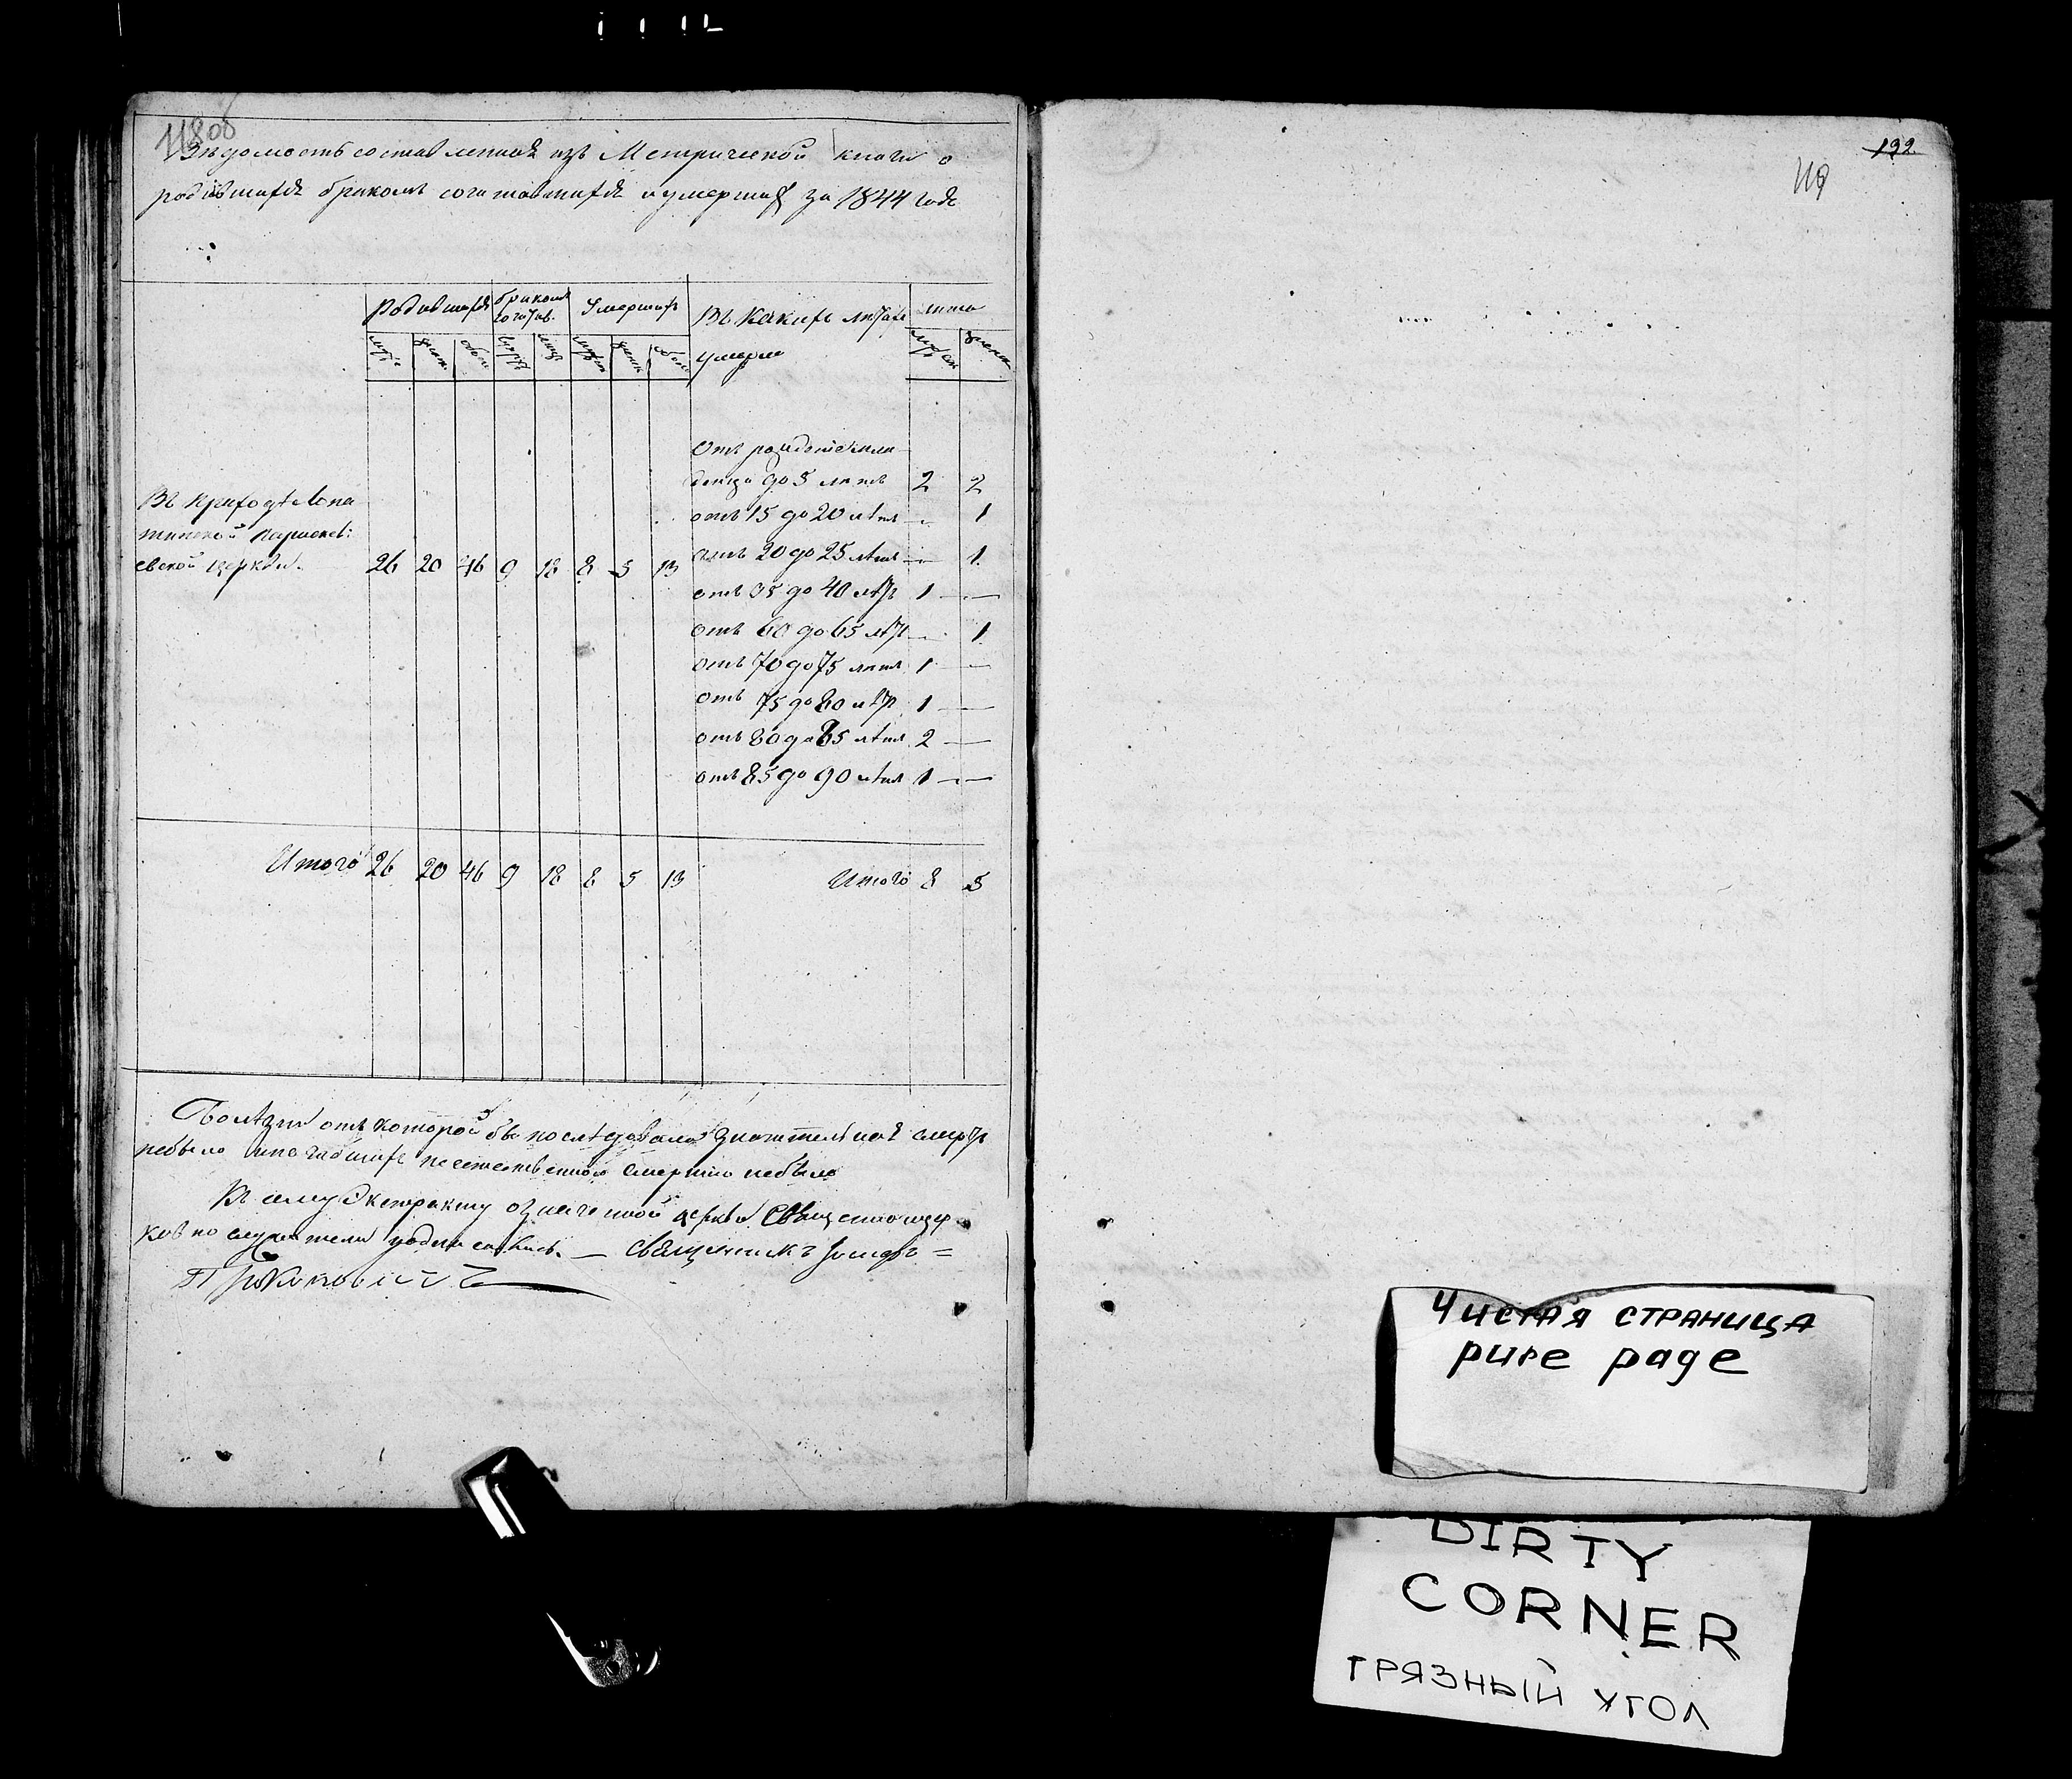 Вѣдомость составленная изъ Метрической книги о
родившихся бракомъ сочетавшихся и умершихъ за 1844 годъ
Родившихся бракомъ сочетав. Умершихъ Въ какихъ лѣтахъ умерли число
муж. женск. обоего муж. женск. обоего муж. женск.
Отъ рожденія мла-
денца до 5 лѣтъ 2 2
отъ 15 до 20 лѣтъ — 1
отъ 20 до 25 лѣтъ — 1
отъ 35 до 40 лѣтъ 1 —
отъ 60 до 65 лѣтъ — 1
отъ 70 до 75 лѣтъ 1 —
отъ 75 до 80 лѣтъ 1 —
отъ 80 до 85 лѣтъ 2 —
отъ 85 до 90 лѣтъ 1 —
Въ приходѣ Лопа
тинской Параскев:
евской церкви. 26 20 46 9 18 8 5 13
Итого 26 20 46 9 18 8 5 13 Итого 8 5
Болѣзни отъ которой бы последовала значительная смерть
небыло и погибшихъ неестественною смертию небыло
Къ сему Экстракту означенной церкви Священноцер
ковно служители подписались. — Священникъ Іосифъ =
Прокоповичъ
132
119
Чистая страница
pure page
DIRTY
CORNER
ГРЯЗНЫЙ УГОЛ